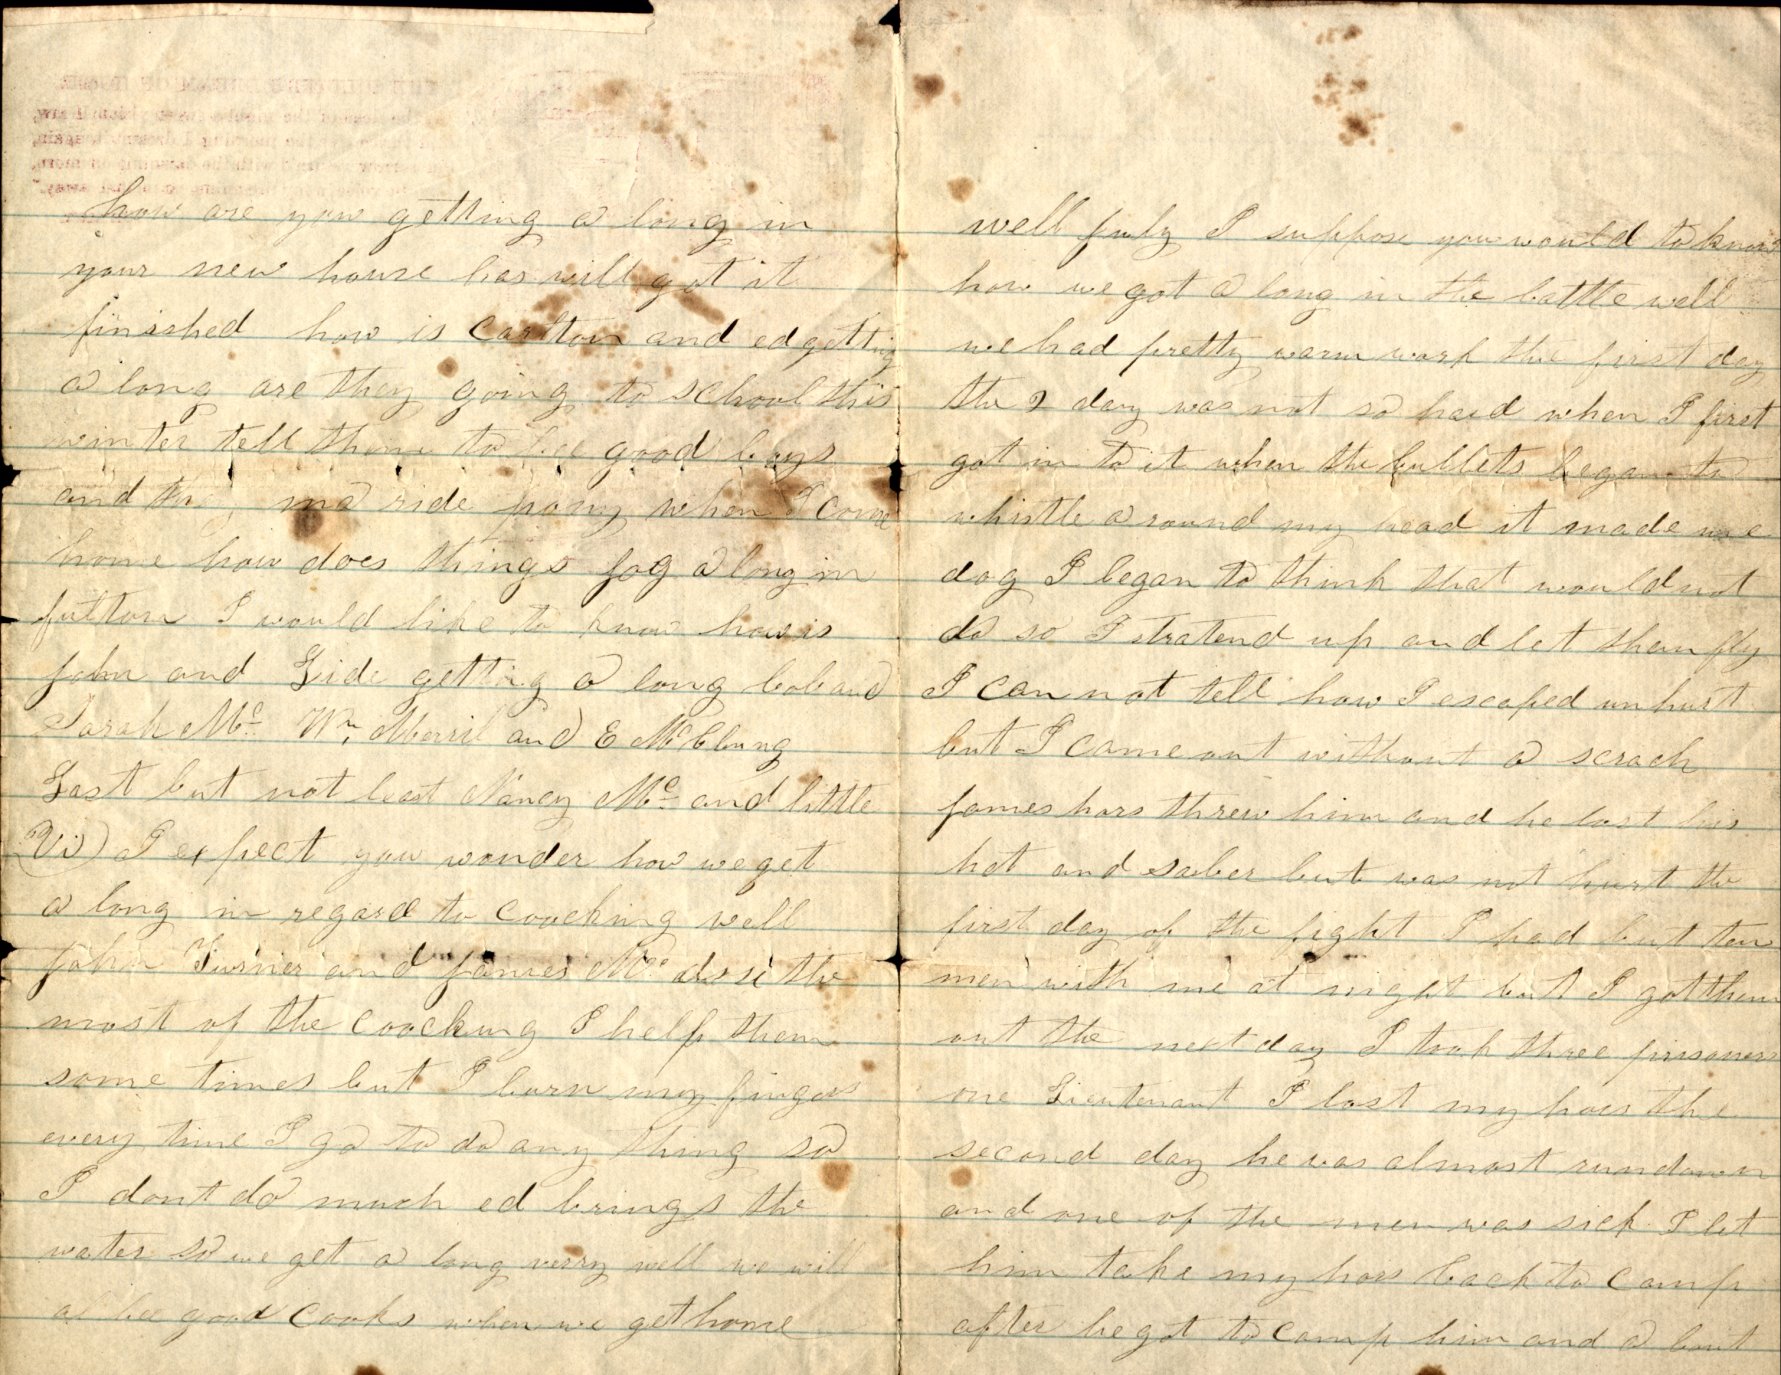 how are you getting a long in
your new house has will got it
finished how is Carlton and ed getting
a long are they going to school this
winter tell them to bee good boys
and they ma ride pony when I come
home how does things jog a long in
fulton I would like to know how is
John and Lide getting a long bob and
Sarah Mc Wm, Merril and E McClung
Last but not least Nancy Mc and little
Vi) I expect you wonder how we get
a long in regard to coocking well
John Turner and James Mc does the
most of the coocking I help them
some times but I burn my fingers
every time I go to do any thing so
I dont do much ed brings the
water so we get a long verry well we will
al bee good Cooks when we get home
well July I suppose you would to know
how we got a long in the battle well
we had pretty warm work the first day
the 2 day was not so hard when I first
got in to it when the bullets began to
whistle a round my head it made me
dog I began to think that would not
do so I stratend up and let them fly
I can not tell how I escaped unhurt
but I came out without a scrach
James hors threw him and he lost his
hat and saber but was not hurt the
first day of the fight I had but ten
men with me at night but I got them
out the next day I took three prisoners
one Lieutenant I lost my hors the
second day he was almost rundown
and one of the men was sick I let
him take my hors back to camp
after he got to camp him and a bout